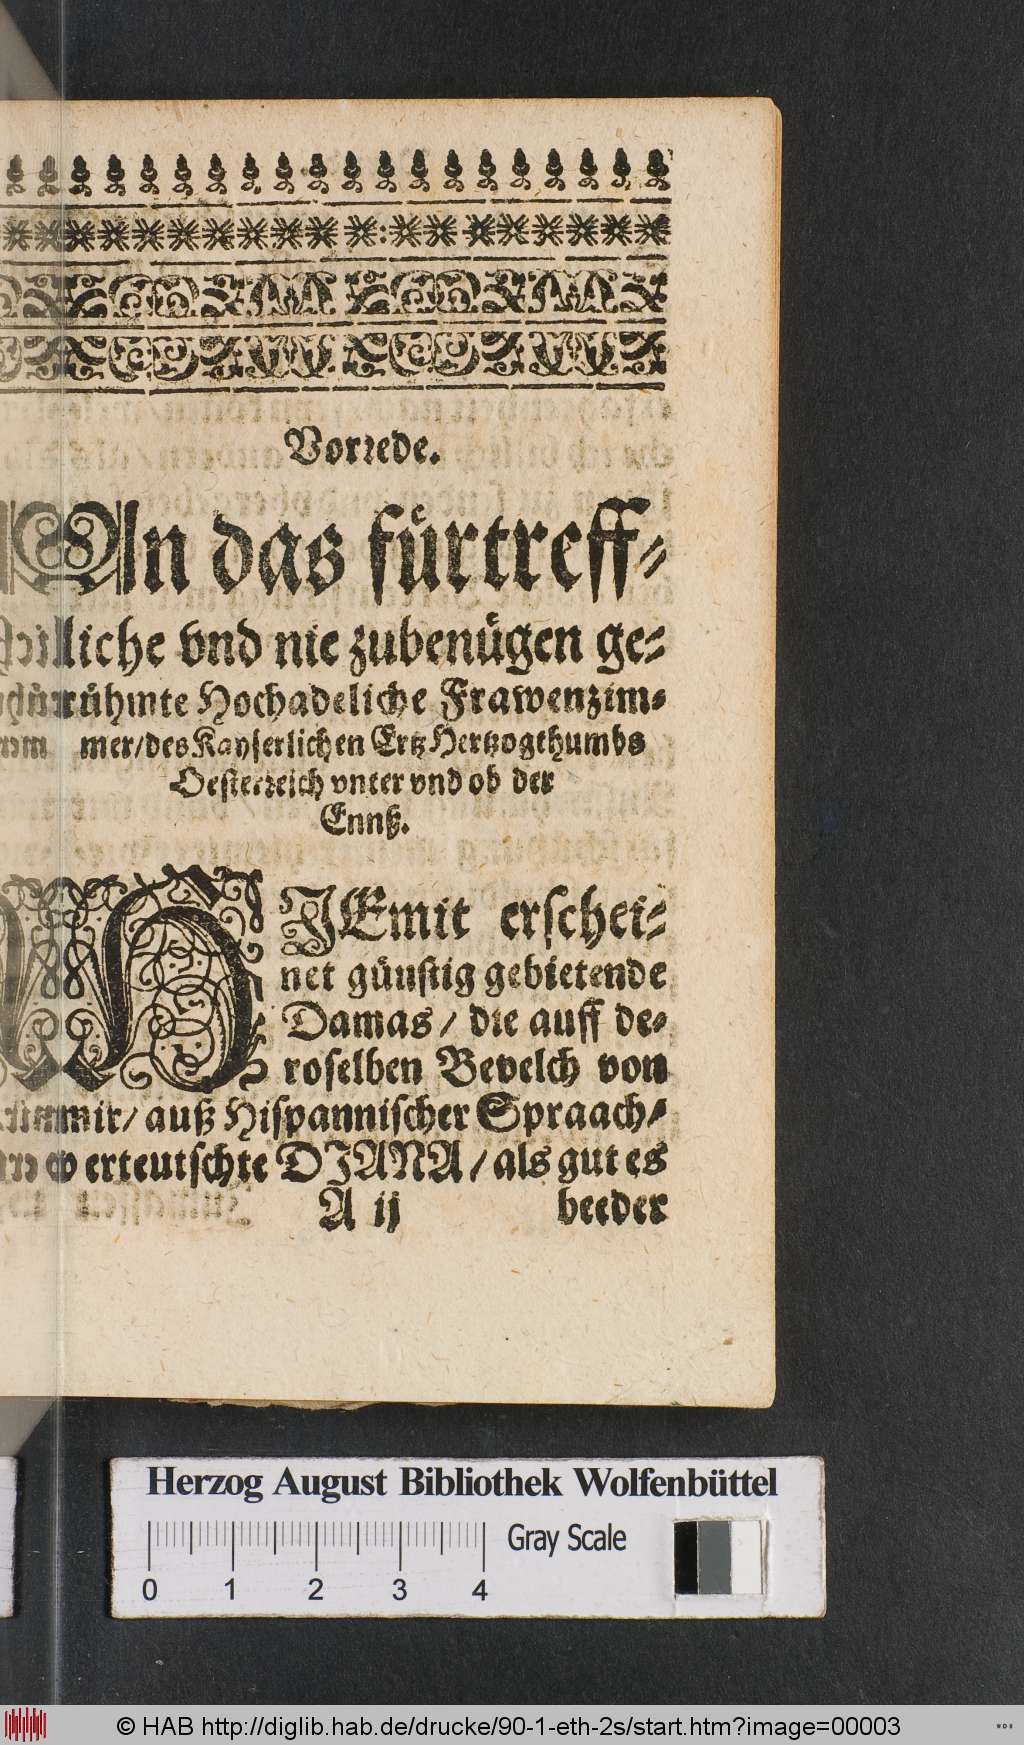 Vorrede.
An das fürtreff-
liche vnd nie zubenügen ge-
rühmte Hochadeliche Frawenzim-
mer/des Kayserlichen Ertz Hertzogthumbs
Oesterreich vnter vnd ob der
Ennß.
HIEmit erschei-
net günstig gebietende
Damas / die auff de-
roselben Bevelch von
mir/ auß Hispannischer Spraach-
erteutschte DIANA / als gut es
A ij beeder
Herzog August Bibliothek Wolfenbüttel
Gray Scale
0 1 2 3 4
© HAB http://diglib.hab.de/drucke/90-1-eth-2s/start.htm?image=00003